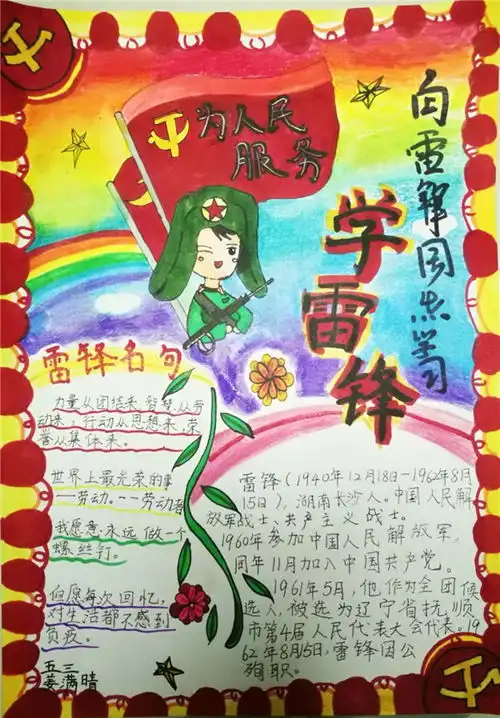 为人民
服务
向雷锋同志学习
学雷锋
雷锋名句
力量从团结来,智慧从劳
动来,行动从思想来,荣
誉从集体来。
世界上最光荣的事
——劳动。——劳动者
我愿意永远做一个
螺丝钉。
但愿每次回忆,
对生活都不感到
负疚。
五三
姜满晴
雷锋(1940年12月18日—1962年8月
15日),湖南长沙人。中国人民解
放军战士,共产主义战士。
1960年参加中国人民解放军,
同年11月加入中国共产党。
1961年5月,他作为全团候
选人,被选为辽宁省抚顺
市第4届人民代表大会代表。19
62年8月15日,雷锋因公
殉职。